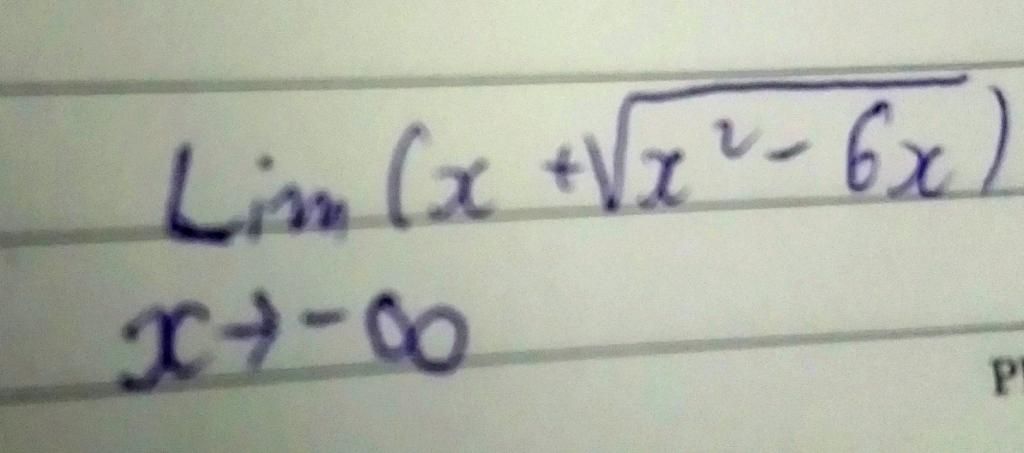 Lim (x + √x² - 6x)
x → - ∞